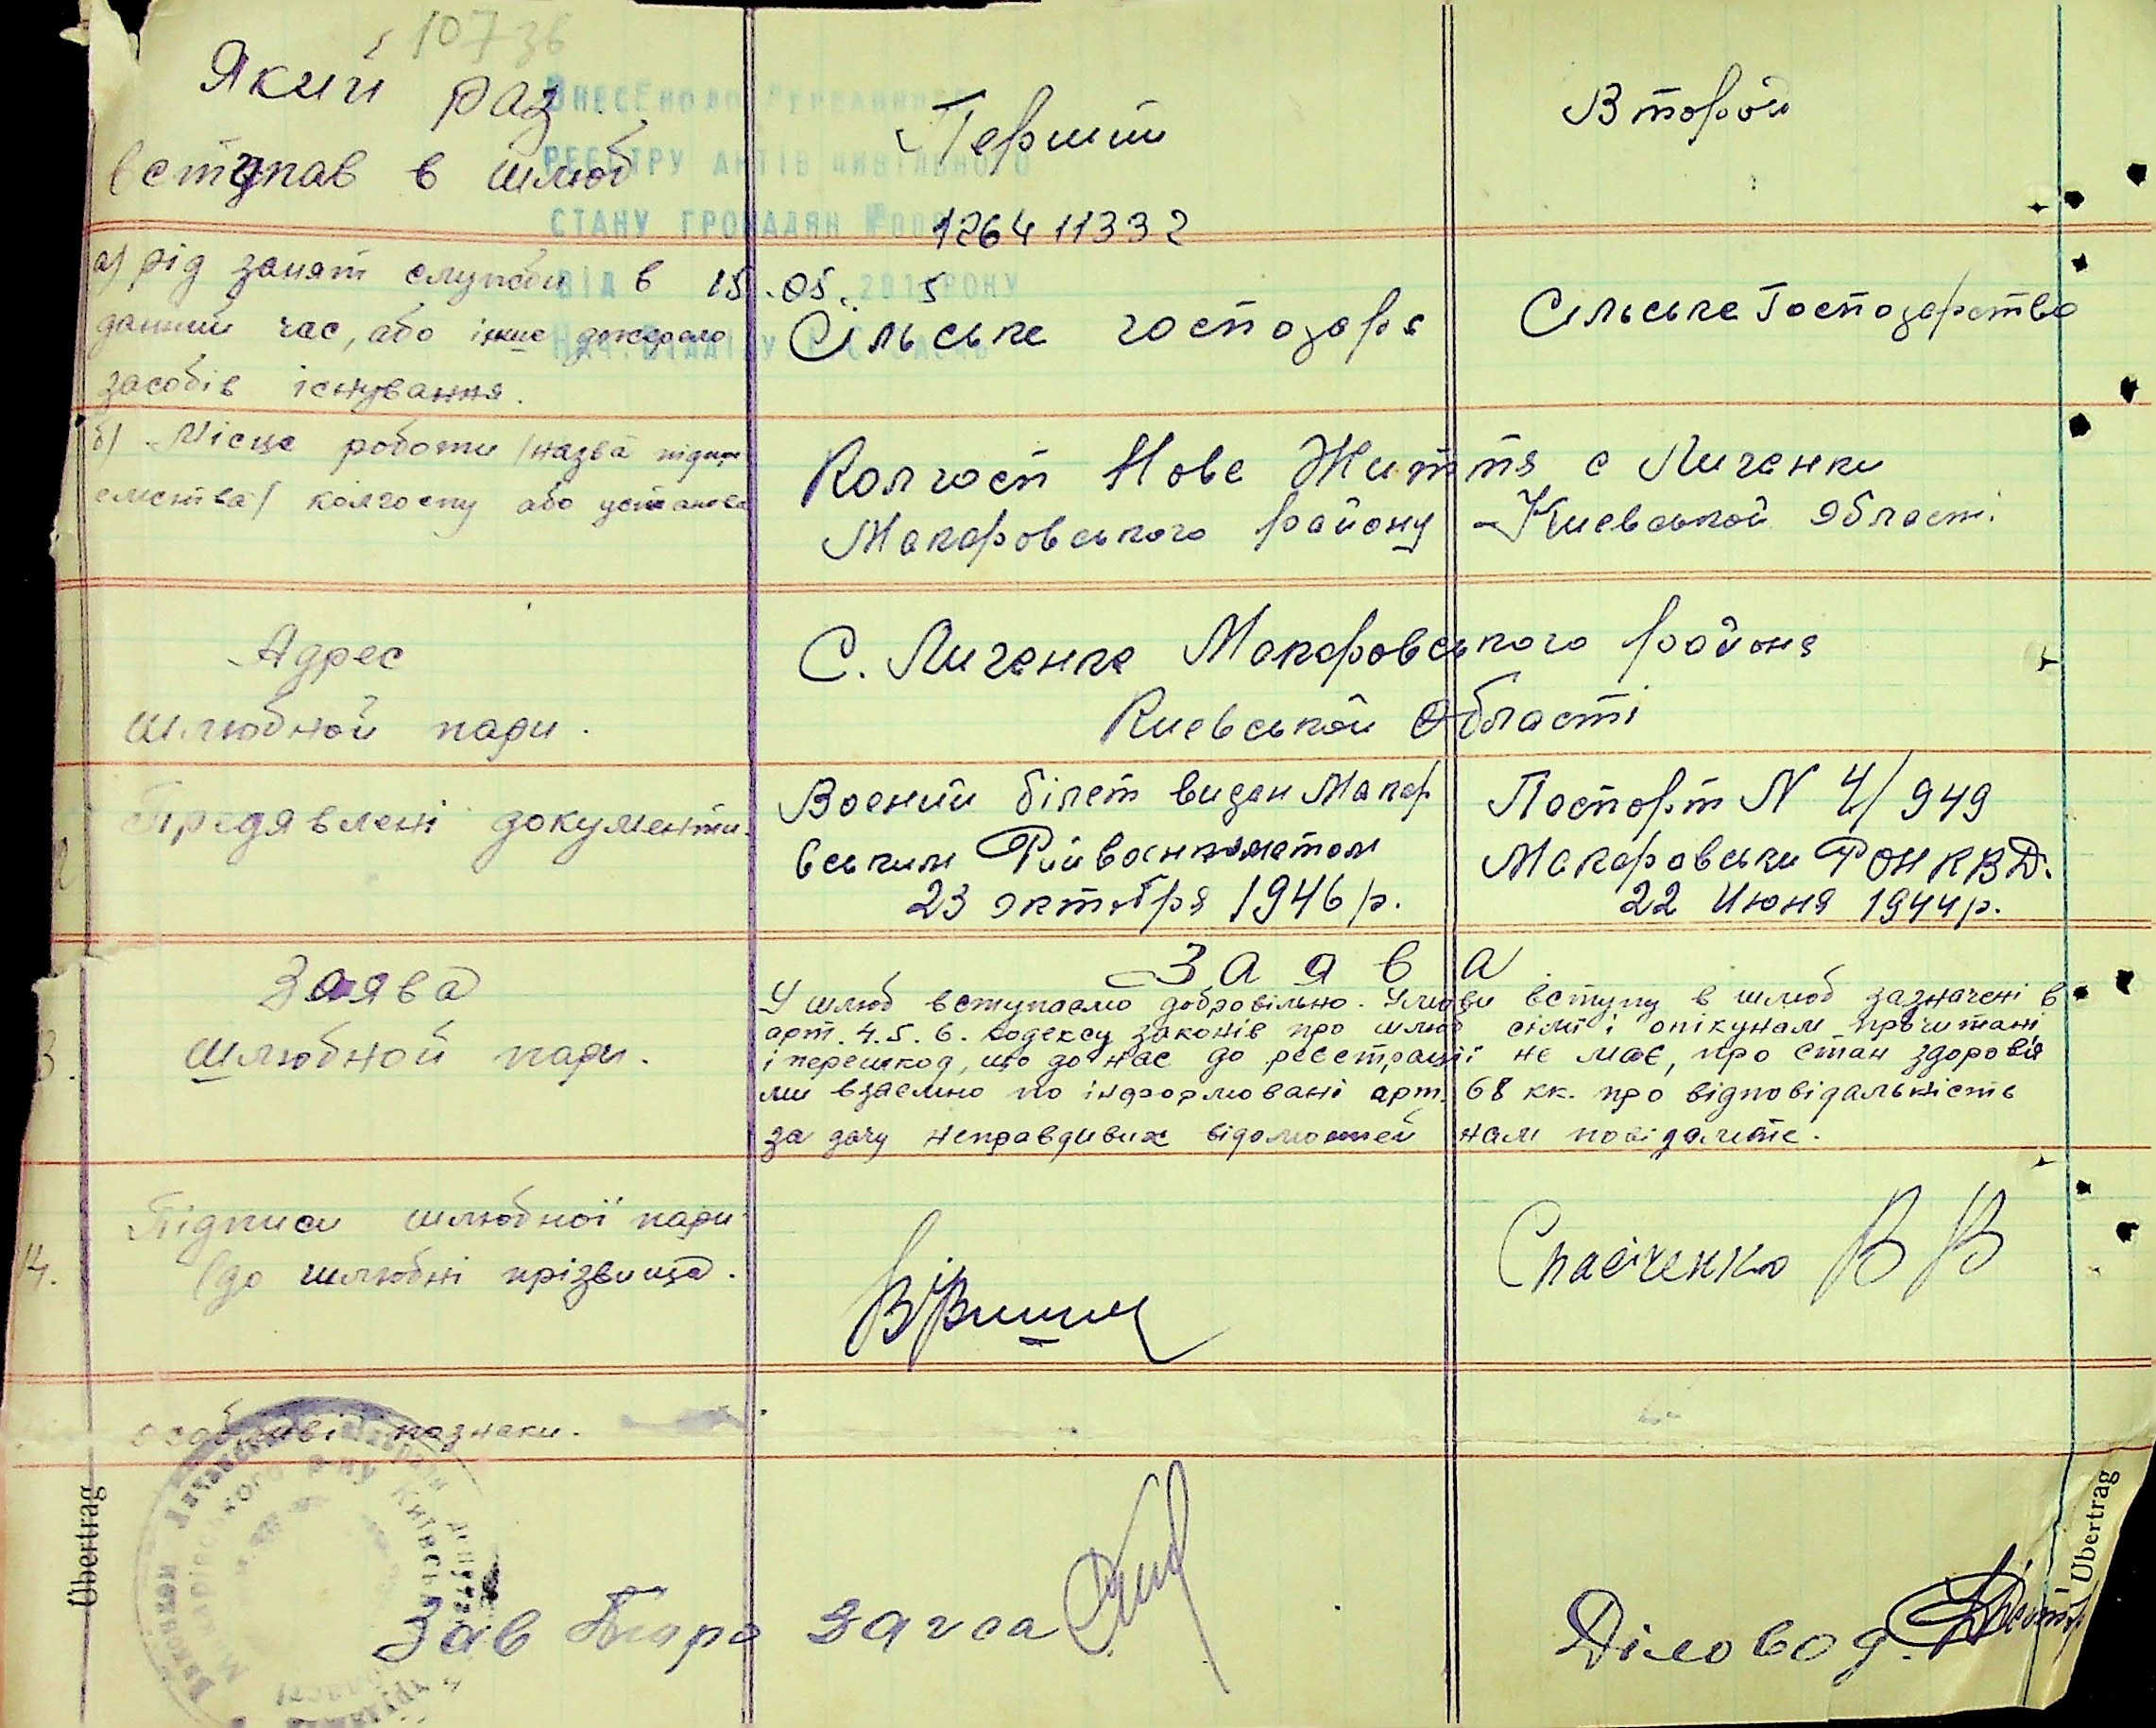 10736
Який раз
вступав в шлюб
Перший
Второй
ВНЕСЕНО ДО ДЕРЖАВНОГО
РЕЄСТРУ АКТІВ ЦИВІЛЬНОГО
СТАНУ ГРОМАДЯН №00126411332
ВІД 15.05.2015 РОКУ
а) рід занят служби в
данний час, або інше джерело
засобів існування.
Сільське господарс
Сільське Господарство
б) Місце роботи /назва підпри
ємства/ колгоспу або установа
Колгосп Нове Життя с Личенки
Макаровського району Киевськой области.
Адрес
шлюбной пари.
С. Личенке Макаровського района
Киевськой Області
Предявлені документи.
Воений білет видан Макар
вським Райвоенкоматом
23 октября 1946 р.
Паспорт N 4/949
Макаровськи РО НКВД.
22 Июня 1944 р.
3.
Заява
шлюбной пари.
Заява
У шлюб вступаємо добровільно. Умови вступу в шлюб зазначені в
арт. 4.5.6. кодексу законів про шлюб сімї і опікунам прочитані
і перешкод, що до нас до реєстрації не має, про стан здоровія
ми взаємно по інформовані арт. 68 кк. про відповідальність
за дачу неправдивих відомостей нам повідомлите.
14.
Підписи шлюбної пари
(до шлюбні прізвища.
Спасіченко В В
особливі познаки.
Übertrag
Übertrag
Зав Бюро загса
Діловод.